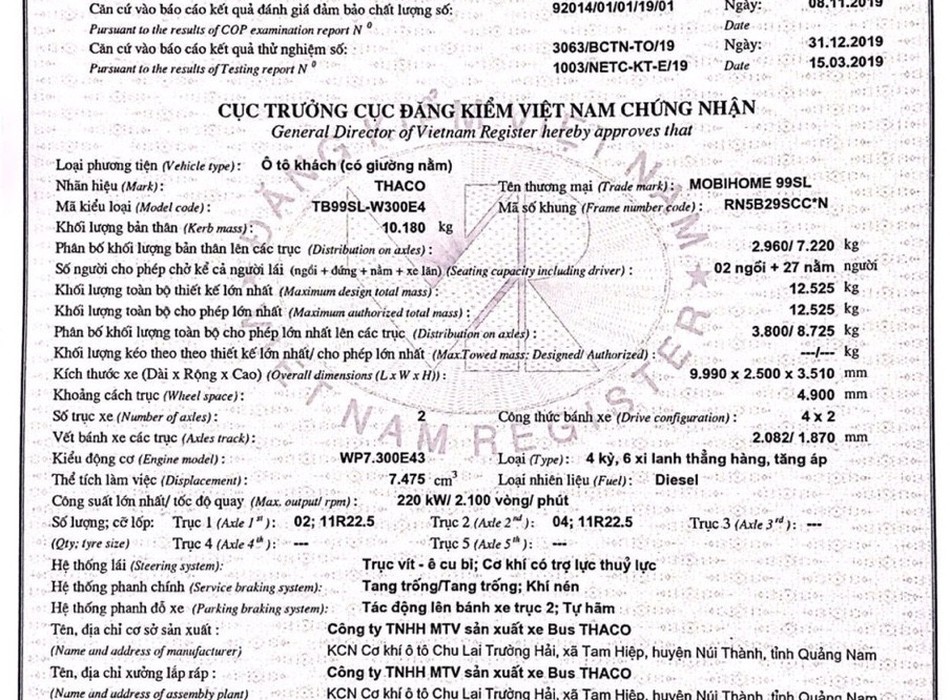 Căn cứ vào báo cáo kết quả đánh giá đảm bảo chất lượng số: 92014/01/01/19/01 Ngày: 08.11.2019
Pursuant to the results of COP examination report N⁰ Date
Căn cứ vào báo cáo kết quả thử nghiệm số: 3063/BCTN-TO/19 Ngày: 31.12.2019
Pursuant to the results of Testing report N⁰ 1003/NETC-KT-E/19 Date 15.03.2019
CỤC TRƯỞNG CỤC ĐĂNG KIỂM VIỆT NAM CHỨNG NHẬN
General Director of Vietnam Register hereby approves that
Loại phương tiện (Vehicle type): Ô tô khách (có giường nằm)
Nhãn hiệu (Mark): THACO Tên thương mại (Trade mark): MOBIHOME 99SL
Mã kiểu loại (Model code): TB99SL-W300E4 Mã số khung (Frame number code): RN5B29SCC*N
Khối lượng bản thân (Kerb mass): 10.180 kg
Phân bố khối lượng bản thân lên các trục (Distribution on axles): 2.960/ 7.220 kg
Số người cho phép chở kể cả người lái (ngồi + đứng + nằm + xe lăn) (Seating capacity including driver): 02 ngồi + 27 nằm người
Khối lượng toàn bộ thiết kế lớn nhất (Maximum design total mass): 12.525 kg
Khối lượng toàn bộ cho phép lớn nhất (Maximum authorized total mass): 12.525 kg
Phân bố khối lượng toàn bộ cho phép lớn nhất lên các trục (Distribution on axles): 3.800/ 8.725 kg
Khối lượng kéo theo theo thiết kế lớn nhất/ cho phép lớn nhất (Max.Towed mass: Designed/ Authorized): ---/--- kg
Kích thước xe (Dài x Rộng x Cao) (Overall dimensions (L x W x H)): 9.990 x 2.500 x 3.510 mm
Khoảng cách trục (Wheel space): 4.900 mm
Số trục xe (Number of axles): 2 Công thức bánh xe (Drive configuration): 4 x 2
Vết bánh xe các trục (Axles track): 2.082/ 1.870 mm
Kiểu động cơ (Engine model): WP7.300E43 Loại (Type): 4 kỳ, 6 xi lanh thẳng hàng, tăng áp
Thể tích làm việc (Displacement): 7.475 cm³ Loại nhiên liệu (Fuel): Diesel
Công suất lớn nhất/ tốc độ quay (Max. output/ rpm): 220 kW/ 2.100 vòng/ phút
Số lượng; cỡ lốp: Trục 1 (Axle 1ˢᵗ): 02; 11R22.5 Trục 2 (Axle 2ⁿᵈ): 04; 11R22.5 Trục 3 (Axle 3ʳᵈ): ---
(Qty; tyre size) Trục 4 (Axle 4ᵗʰ): --- Trục 5 (Axle 5ᵗʰ): ---
Hệ thống lái (Steering system): Trục vít - ê cu bi; Cơ khí có trợ lực thuỷ lực
Hệ thống phanh chính (Service braking system): Tang trống/Tang trống; Khí nén
Hệ thống phanh đỗ xe (Parking braking system): Tác động lên bánh xe trục 2; Tự hãm
Tên, địa chỉ cơ sở sản xuất : Công ty TNHH MTV sản xuất xe Bus THACO
(Name and address of manufacturer) KCN Cơ khí ô tô Chu Lai Trường Hải, xã Tam Hiệp, huyện Núi Thành, tỉnh Quảng Nam
Tên, địa chỉ xưởng lắp ráp : Công ty TNHH MTV sản xuất xe Bus THACO
(Name and address of assembly plant) KCN Cơ khí ô tô Chu Lai Trường Hải, xã Tam Hiệp, huyện Núi Thành, tỉnh Quảng Nam
ĐĂNG KIỂM VIỆT NAM
VIETNAM REGISTER
VR